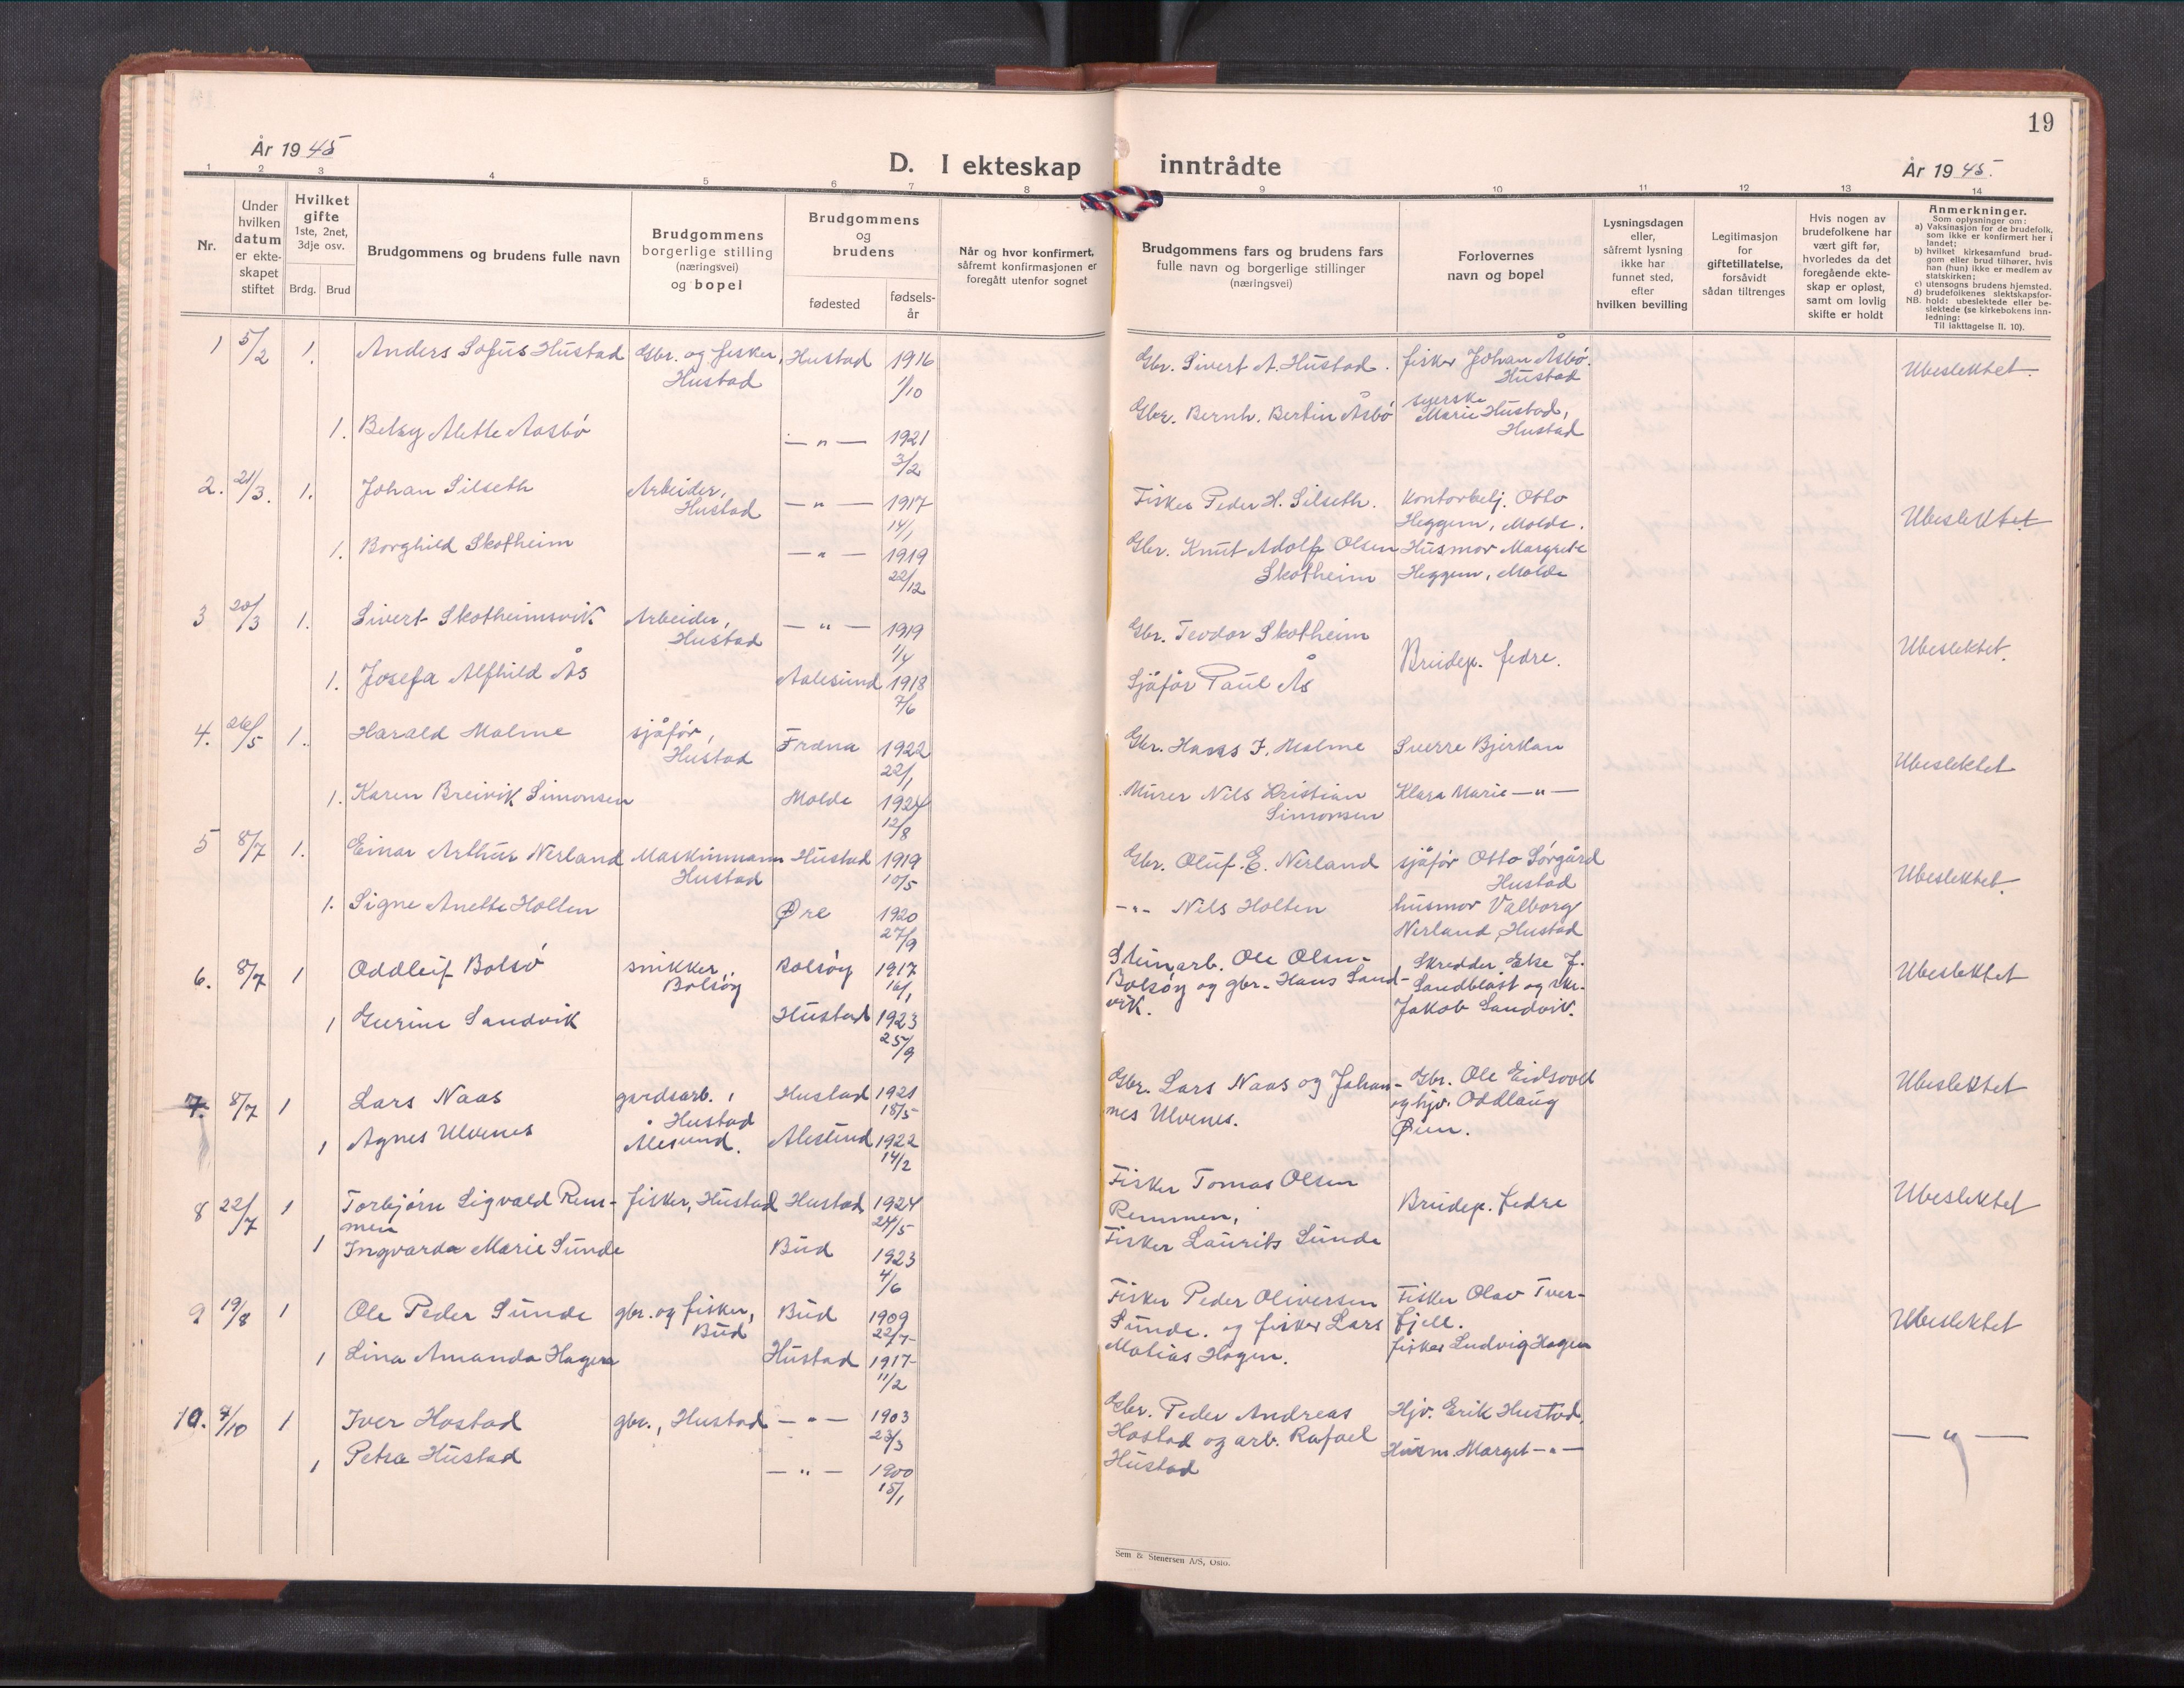 19
År 1945
D. I ekteskap inntrådte
År 1945.
1 2 3 4 5 6 7 8 9 10 11 12 13 14
Nr.
Under hvilken datum er ekteskapet stiftet
Hvilket gifte 1ste, 2net, 3dje osv.
Brdg. Brud
Brudgommens og brudens fulle navn
Brudgommens borgerlige stilling (næringsvei) og bopel
Brudgommens og brudens
fødested
fødselsår
Når og hvor konfirmert, såfremt konfirmasjonen er foregått utenfor sognet
Brudgommens fars og brudens fars fulle navn og borgerlige stillinger (næringsvei)
Forlovernes navn og bopel
Lysningsdagen eller, såfremt lysning ikke har funnet sted, efter hvilken bevilling
Legitimasjon for giftetillatelse, forsåvidt sådan tiltrenges
Hvis nogen av brudefolkene har vært gift før, hvorledes da det foregående ekteskap er opløst, samt om lovlig skifte er holdt
Anmerkninger.
Som oplysninger om:
a) Vaksinasjon for de brudefolk, som ikke er konfirmert her i landet;
b) hvilket kirkesamfund brudgom eller brud tilhører, hvis han (hun) ikke er medlem av statskirken;
c) utensogns brudens hjemsted.
d) brudefolkenes slektskapsforhold: ubeslektede eller beslektede (se kirkebokens innledning:
NB.
Til iakttagelse II. 10).
1 5/2 1. Anders Sofus Hustad Gbr. og fisker, Hustad Hustad 1916 1/10 Gbr. Sivert A. Hustad. fisker Johan Åsbø. Hustad Ubeslektet.
1. Betzy Alette Aasbø — " — 1921 3/2 Gbr. Bernh. Bertin Åsbø syerske Marie Hustad, Hustad
2. 21/3. 1. Johan Silseth Arbeider, Hustad — " — 1917 14/1 Fisker Peder H. Silseth. Kontorbetj. Otto Heggem, Molde. Ubeslektet
1. Borghild Skotheim — " — 1919 22/12 Gbr. Knut Adolf Olsen Skotheim Husmor Margrete Heggem, Molde
3 20/3 1. Sivert Skotheimsvik Arbeider, Hustad — " — 1919 1/4 Gbr. Teodor Skotheim Brudep. fedre. Ubeslektet.
1. Josefa Alfhild Ås Aalesund 1918 7/6 Sjåfør Paul Ås
4. 26/5 1. Harald Malme sjåfør, Hustad Fræna 1922 22/1 Gbr. Hans J. Malme Sverre Bjerkan Ubeslektet
1. Karen Breivik Simonsen Molde 1924 12/8 Murer Nils Kristian Simonsen Klara Marie — " —
5 8/7 1. Einar Arthur Nerland Maskinmann Hustad Hustad 1919 10/5 Gbr. Oluf. E. Nerland sjåfør Otto Sørgård Hustad Ubeslektet.
1. Signe Anette Holten Øre 1920 27/9 -"- Nils Holten husmor Valborg Nerland, Hustad
6. 8/7 1 Oddleif Bolsø snikker, Bolsøy Bolsøy 1917 16/1 Steinarb. Ole Olsen- Bolsøy og gbr. Hans Sandvik. Skredder Else J. Sandblåst og Jakob Sandvik. Ubeslektet
1 Gurine Sandvik Hustad 1923 25/9
7. 8/7 1 Lars Naas gardsarb., Hustad Hustad 1921 18/5 Gbr. Lars Naas og Johannes Ulvenes. Gbr. Ole Eidsvold og hjv. Oddlaug Øien. Ubeslektet
1 Agnes Ulvenes Alesund. Alesund 1922 14/2
8 22/7 1 Torbjørn Sigvald Remmen fisker, Hustad Hustad 1924 24/5 Fisker Tomas Olsen Remmen, Brudep. fedre Ubeslektet
1 Ingvarda Marie Sunde Bud 1923 4/6 Fisker Laurits Sunde
9 19/8 1 Ole Peder Sunde gbr. og fisker, Bud Bud 1909 22/7 Fisker Peder Oliversen Sunde. og fisker Lars Matias Hagen. Fisker Olav Tverfjell. fisker Ludvig Hagen Ubeslektet
1 Lina Amanda Hagen Hustad 1917 11/2
10. 7/10 1 Iver Hostad gbr., Hustad — " — 1903 23/3 Gbr. Peder Andreas Hostad og arb. Rafael Hustad Hjv. Erik Hustad, Husm. Marget -"- — " —
1 Petra Hustad — " — 1900 15/1
Sem & Stenersen A/S, Oslo.